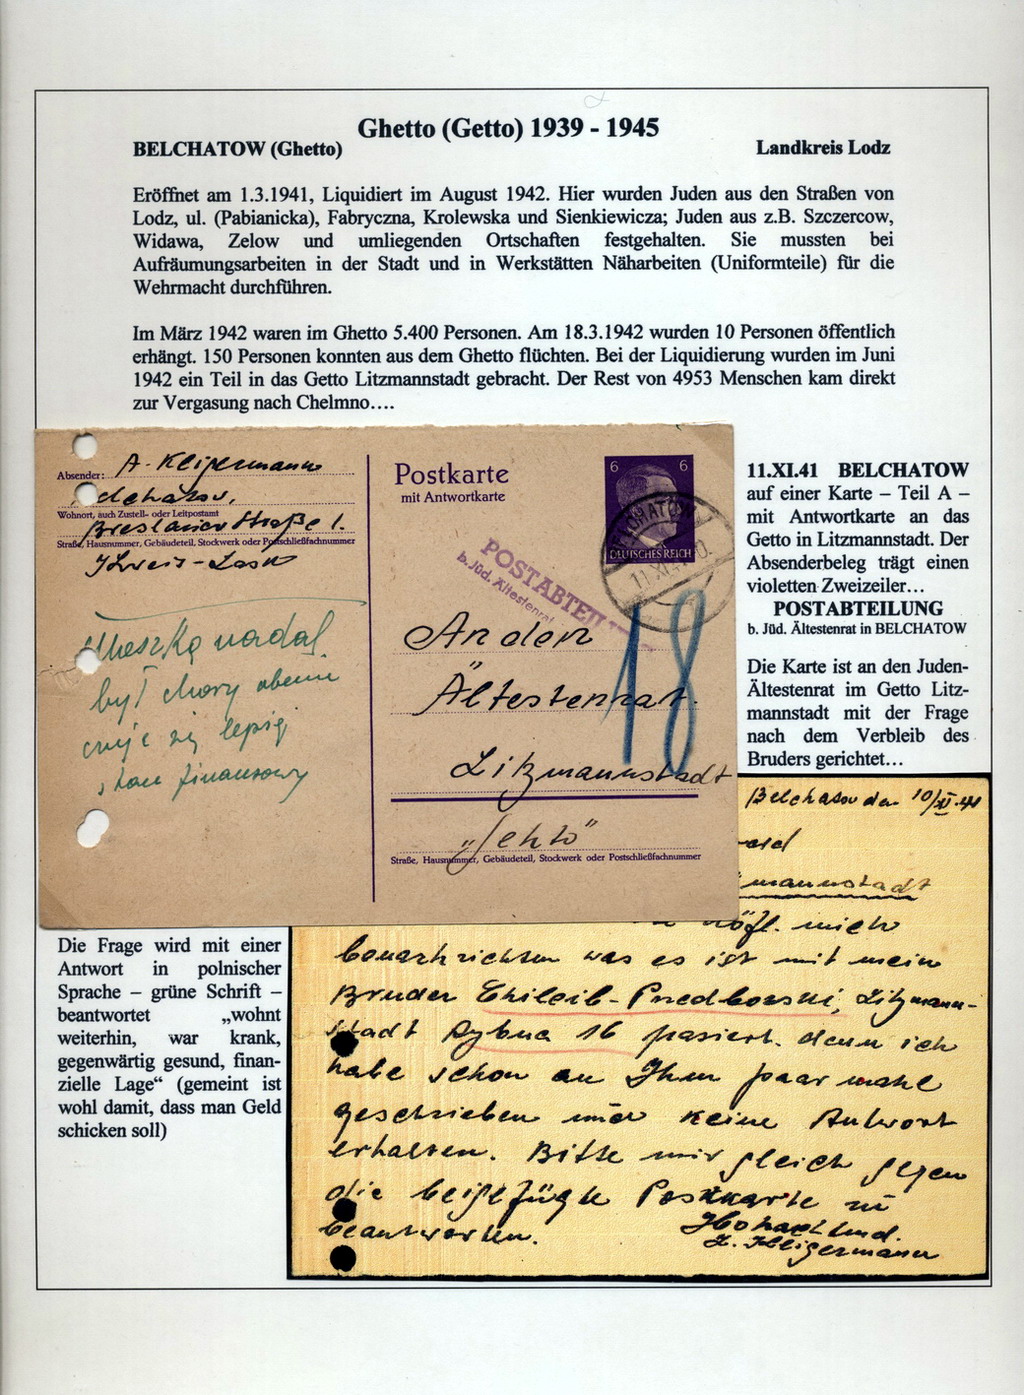 Ghetto (Getto) 1939 - 1945
BELCHATOW (Ghetto)
Landkreis Lodz
Eröffnet am 1.3.1941, Liquidiert im August 1942. Hier wurden Juden aus den Straßen von
Lodz, ul. (Pabianicka), Fabryczna, Krolewska und Sienkiewicza; Juden aus z.B. Szczercow,
Widawa, Zelow und umliegenden Ortschaften festgehalten. Sie mussten bei
Aufräumungsarbeiten in der Stadt und in Werkstätten Näharbeiten (Uniformteile) für die
Wehrmacht durchführen.
Im März 1942 waren im Ghetto 5.400 Personen. Am 18.3.1942 wurden 10 Personen öffentlich
erhängt. 150 Personen konnten aus dem Ghetto flüchten. Bei der Liquidierung wurden im Juni
1942 ein Teil in das Getto Litzmannstadt gebracht. Der Rest von 4953 Menschen kam direkt
zur Vergasung nach Chelmno….
Absender: A. Kligermann
Wohnort, auch Zustell- oder Leitpostamt
Breslauer Straße 1.
Straße, Hausnummer, Gebäudeteil, Stockwerk oder Postschließfachnummer
Kreis-Lask
Mieszka nadal
był chory obecnie
czuje się lepiej
stan finansowy
Postkarte
mit Antwortkarte
6 6
DEUTSCHES REICH
POSTABTEILUNG
b. Jüd. Ältestenrat
18
An den
Ältestenrat
Litzmannstadt
Straße, Hausnummer, Gebäudeteil, Stockwerk oder Postschließfachnummer
11.XI.41 BELCHATOW
auf einer Karte – Teil A –
mit Antwortkarte an das
Getto in Litzmannstadt. Der
Absenderbeleg trägt einen
violetten Zweizeiler…
POSTABTEILUNG
b. Jüd. Ältestenrat in BELCHATOW
Die Karte ist an den Juden-
Ältestenrat im Getto Litz-
mannstadt mit der Frage
nach dem Verbleib des
Bruders gerichtet…
Die Frage wird mit einer
Antwort in polnischer
Sprache – grüne Schrift –
beantwortet „wohnt
weiterhin, war krank,
gegenwärtig gesund, finan-
zielle Lage“ (gemeint ist
wohl damit, dass man Geld
schicken soll)
Belchatow den 10/XI 41
mannstadt
höfl. mich
benachrichten was es ist mit mein
Bruder Chileib-Predborski, Litzmann-
stadt Rybna 16 pasiert. denn ich
habe schon an Ihm paar mahl
geschrieben und keine Antwort
erhalten. Bitte mir gleich gegen
die beigefügte Postkarte zu
beantworten.
Hochachtend.
Kligermann